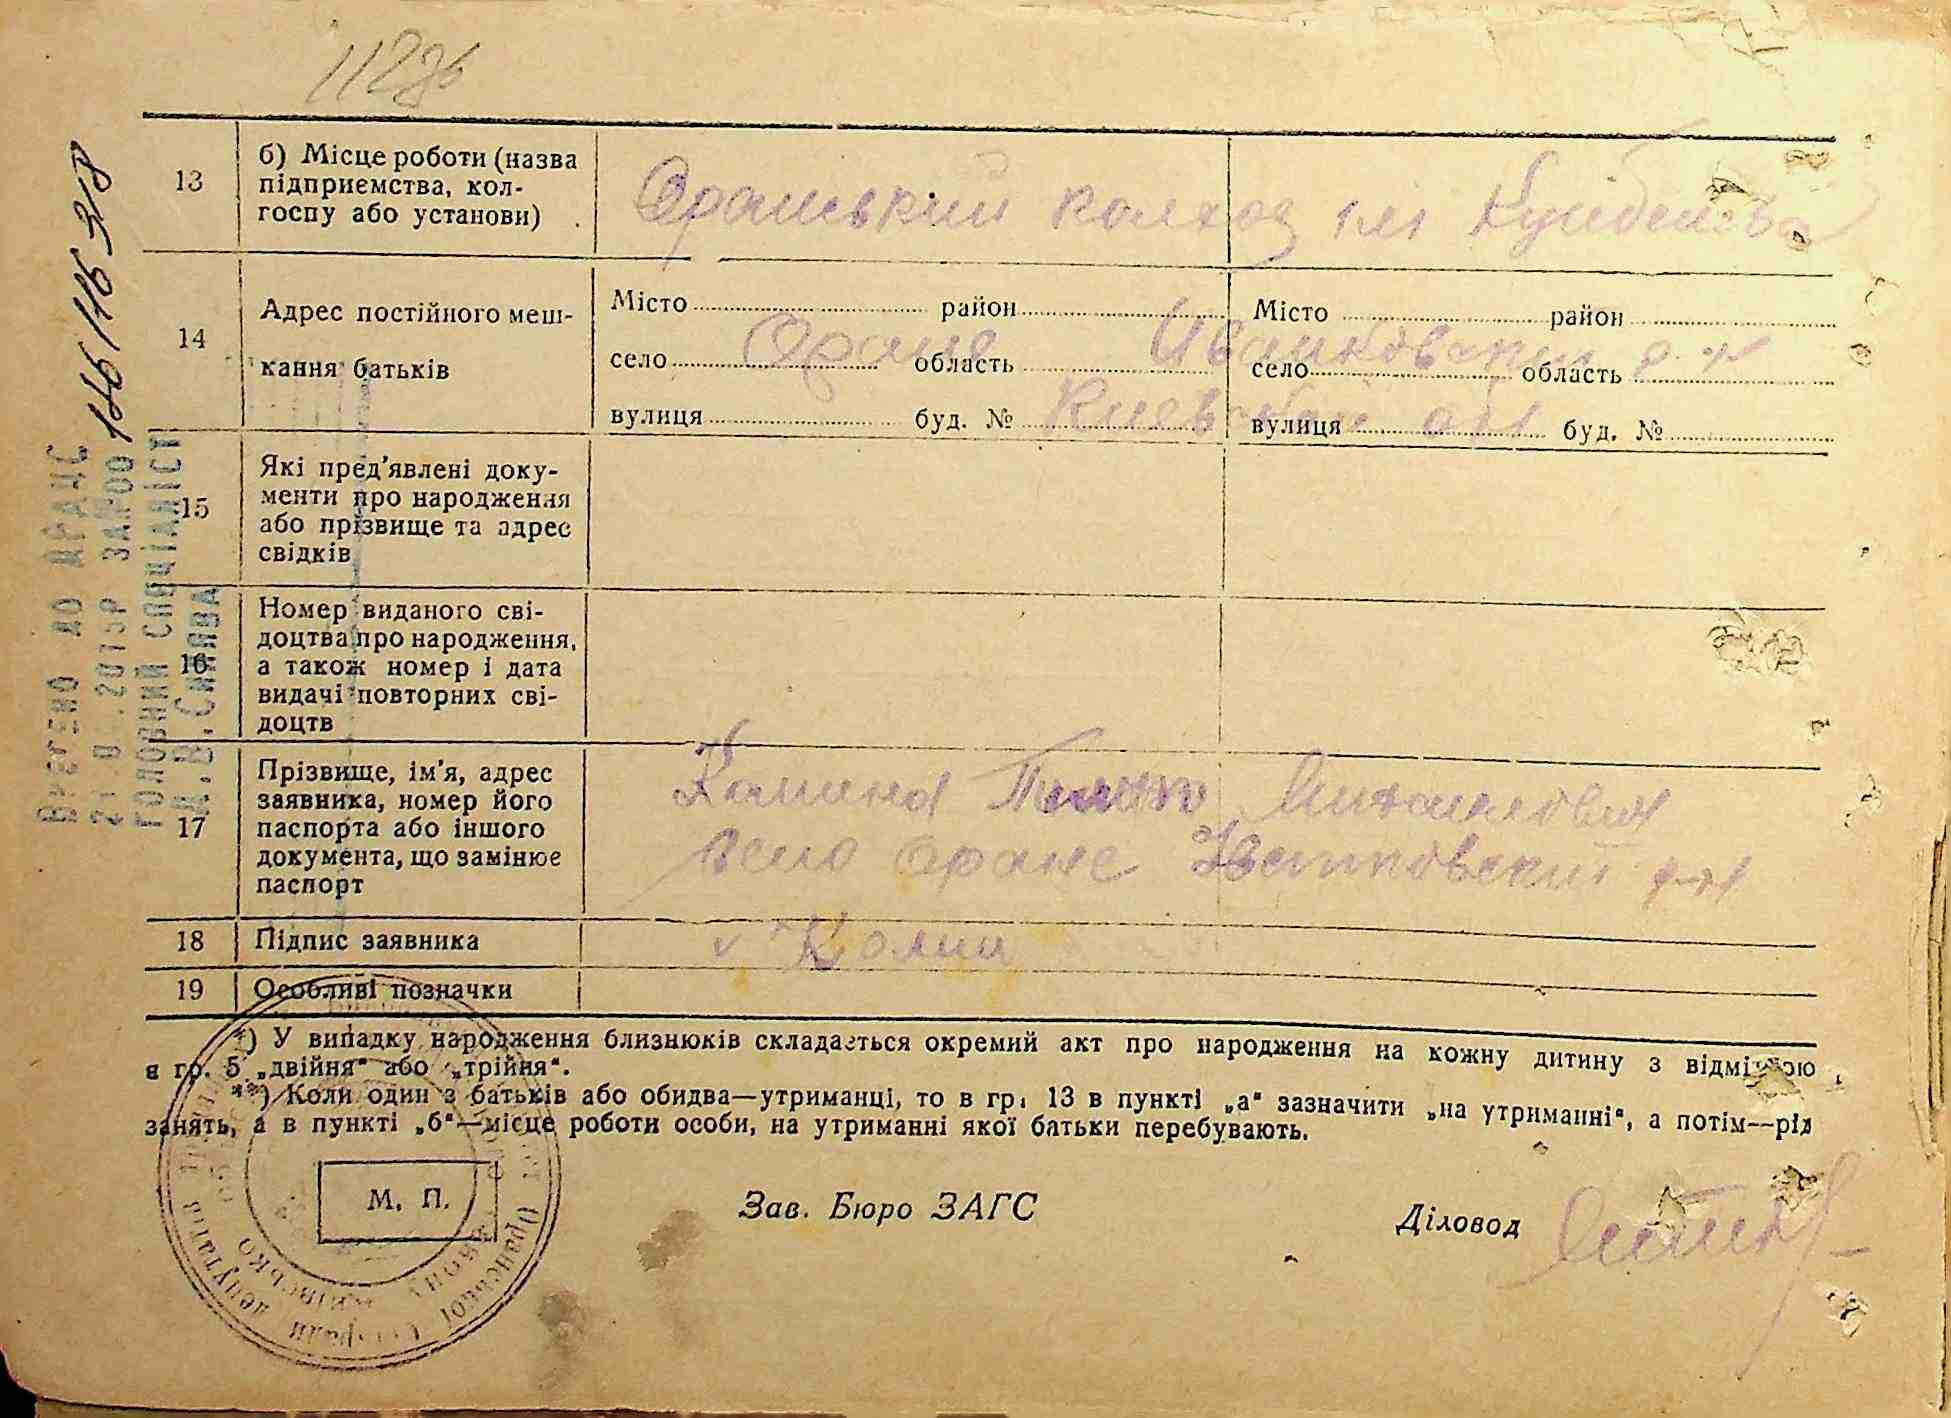 112зв
13
б) Місце роботи (назва
підприємства, кол-
госпу або установи)
Оранський колхоз ім Куйбешева
14
Адрес постійного меш-
кання батьків
Місто район Місто район
село Оране область Иванковский р-н село область
вулиця буд. № Киевской обл вулиця буд. №
15
Які пред'явлені доку-
менти про народження
або прізвище та адрес
свідків
16
Номер виданого сві-
доцтва про народження,
а також номер і дата
видачі повторних сві-
доцтв
17
Прізвище, ім'я, адрес
заявника, номер його
паспорта або іншого
документа, що замінює
паспорт
Михайлович
село Оране Иванковский р-н
18
Підпис заявника
19
Особливі позначки
*) У випадку народження близнюків складається окремий акт про народження на кожну дитину з відміткою
в гр. 5 „двійня“ або „трійня“.
**) Коли один з батьків або обидва—утриманці, то в гр. 13 в пункті „а“ зазначити „на утриманні“, а потім—рід
занять, а в пункті „б“—місце роботи особи, на утриманні якої батьки перебувають.
М. П.
Зав. Бюро ЗАГС
Діловод
Внесено до ДРАЦС
2015р ЗА №00116/116318
головний спеціаліст
Д.В.Синява